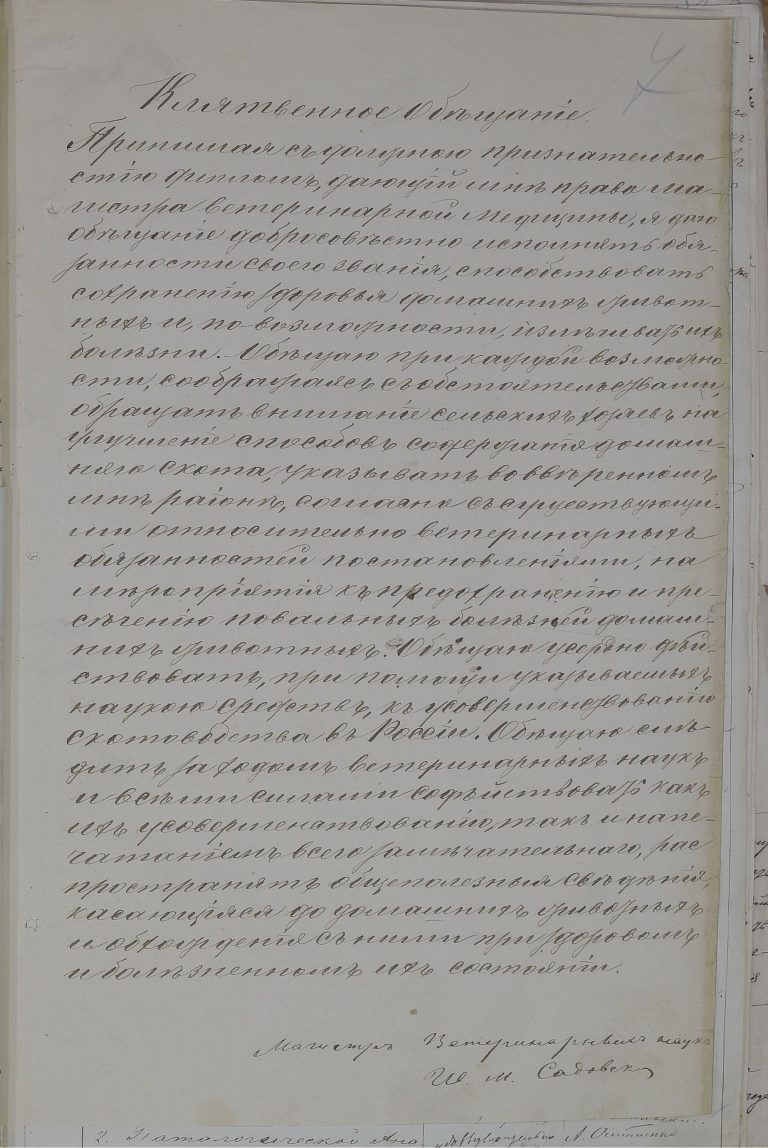 7
Клятвенное Обѣщаніе.
Принимая съ должною признательно-
стію дипломъ, дающій мнѣ право ма-
гистра ветеринарной медицины, я даю
обѣщаніе добросовѣстно исполнять обя-
занности своего званія, способствовать
сохраненію здоровья домашнихъ живот-
ныхъ и, по возможности, излѣчивать ихъ
болѣзни. - Обѣщаю при каждой возможно-
сти, соображаясь съ обстоятельствами,
обращать вниманіе сельскихъ хозяевъ на
улучшеніе способовъ содержанія домаш-
няго скота, указывать во ввѣренномъ
мнѣ районѣ, согласно съ существующи-
ми относительно ветеринарныхъ
обязанностей постановленіями, на
мѣропріятія къ предохраненію и пре-
сѣченію повальныхъ болѣзней домаш-
нихъ животныхъ. Обѣщаю усердно дѣй-
ствовать, при помощи указываемыхъ
наукою средствъ, къ усовершенствованію
скотоводства въ Россіи. Обѣщаю слѣ-
дить за ходомъ ветеринарныхъ наукъ
и всѣми силами содѣйствовать какъ
ихъ усовершенствованію, такъ и напе-
чатаніемъ всего замѣчательнаго, рас
пространять общеполезныя свѣдѣнія,
касающіяся до домашнихъ животныхъ
и обхожденія съ ними при здоровомъ
и болѣзненномъ ихъ состояніи.
Магистръ Ветеринарныхъ наукъ
И. М. Садовск
2. Патологической Ана